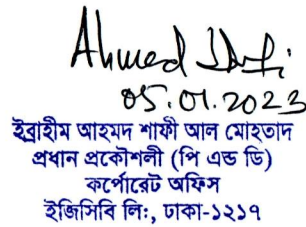 Ahmed Shafi
05.01.2023
ইব্রাহীম আহমদ শাফী আল মোহতাদ
প্রধান প্রকৌশলী (পি এন্ড ডি)
কর্পোরেট অফিস
ইজিসিবি লি:, ঢাকা-১২১৭